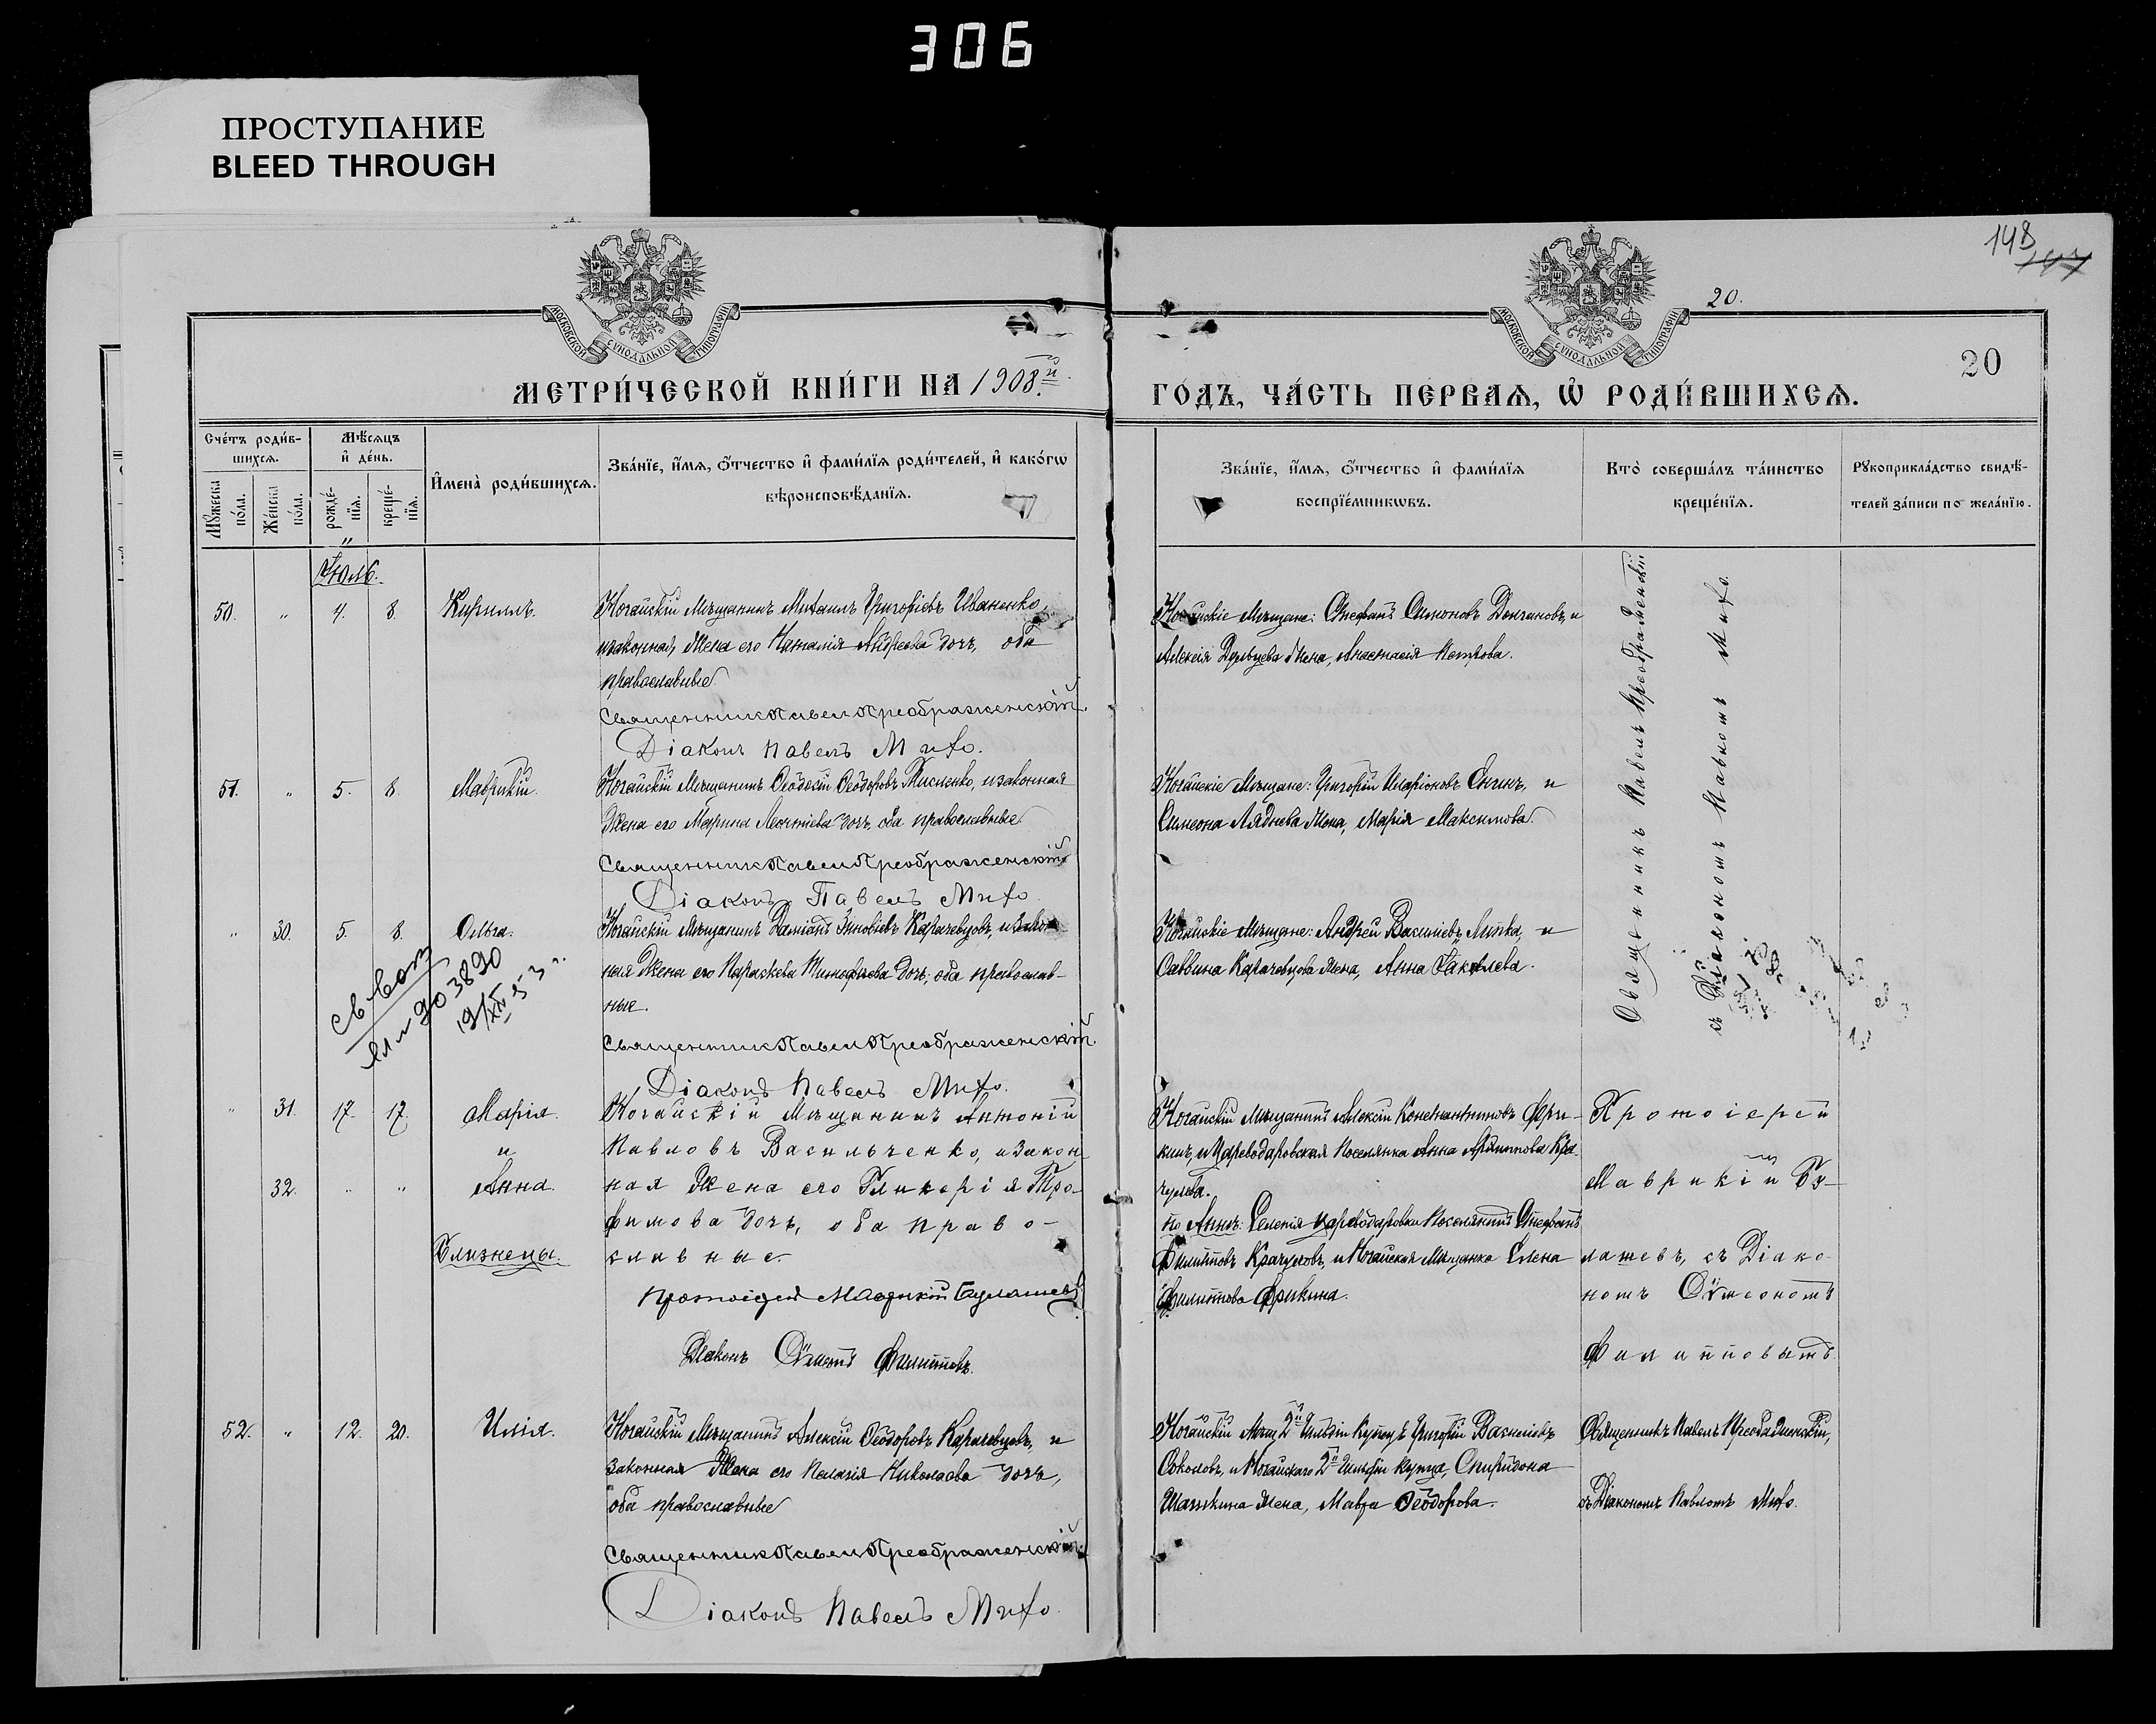 306
ПРОСТУПАНИЕ
BLEED THROUGH
148
20.
20
МОСКОВСКОЙ СѴНОДАЛЬНОЙ ТИПОГРАФІИ
МОСКОВСКОЙ СѴНОДАЛЬНОЙ ТИПОГРАФІИ
МЕТРИ́ЧЕСКОЙ КНИ́ГИ НА 1908й
ГО́ДЪ, ЧА́СТЬ ПЕРВАѦ, Ѡ҆ РОДИ́ВШИХСѦ.
Сче́тъ роди́в-
шихсѧ.
Мꙋ́жеска по́ла.
Же́нска по́ла.
Мѣ́сѧцъ
и҆ де́нь.
рожде́-
нїѧ.
креще́-
нїѧ.
И҆мена̀ роди́вшихсѧ.
Зва́нїе, и҆́мѧ, ѻ҆́тчество и҆ фами́лїѧ роди́телей, и҆ како́гѡ
вѣроисповѣ́данїѧ.
Зва́нїе, и҆́мѧ, ѻ҆́тчество и҆ фами́лїѧ
воспрїе́мникѡвъ.
Кто̀ соверша́лъ та́инство
креще́нїѧ.
Рꙋкоприкла́дство свидѣ́-
телей за́писи по жела́нїю.
Іюль.
50. " 4. 8. Кириллъ.
Ногайскій мѣщанинъ Михаилъ Григоріевъ Иваненко,
и законная жена его Наталія Андреева дочь, оба
православные
Священник Павел Преображенскій.
Діаконъ Павелъ Михо.
Ногайскіе мѣщане: Стефанъ Симоновъ Дончановъ, и
Алексія жена, Анастасія Петрова.
Священникъ Павелъ Преображенскій
съ Діакономъ Павломъ Михо.
51. " 5. 8. Маврикій.
Ногайскій мѣщанинъ Ѳеодосій Ѳеодоровъ Кисленко, и законная
жена его Марина Леонтіева дочь, оба православные
Священник Павел Преображенскій
Діаконъ Павелъ Михо
Ногайскіе мѣщане: Григорій Иларіоновъ Енинъ, и
Симеона Ляднева жена, Марія Максимова.
" 30. 5. 8. Ольга.
Ногайскій мѣщанинъ Даміанъ Зиновіевъ Карачевцовъ, и закон
ная жена его Параскева Тимофеева дочь, оба православ-
ные.
Священник Павел Преображенскій.
Діаконъ Павелъ Михо.
Ногайскіе мѣщане: Андрей Василіевъ Липка, и
Саввина Карачевцова жена, Анна Іаковлева.
903890
19/XII 53 г.
" 31. 17. 17. Марія.
и
32. " " Анна.
Близнецы.
Ногайскій мѣщанинъ Антоній
Павловъ Васильченко, и закон
ная жена его Гликерія Тро-
фимова дочь, оба право-
славные.
Протоіерей Маврикій Булашевъ
Діаконъ Сѵмеонъ Филипповъ.
Ногайскій мѣщанинъ Алексій Константиновъ Фри-
кинъ, и Цареводаровская поселянка Анна Филиппова Кра-
чулева.
по Аннѣ: Селенія Цареводаровки поселянинъ Стефанъ
Филипповъ Крачуловъ, и Ногайская мѣщанка Елена
Филиппова Фрикина.
Протоіерей
Маврикій Бу-
лашевъ, съ Діако-
номъ Сѵмеономъ
Филипповымъ
52. " 12. 20. Илія.
Ногайскій мѣщанинъ Алексій Ѳеодоровъ Карачевцовъ, и
законная жена его Пелагія Николаева дочь,
оба православные
Священник Павел Преображенскій
Діаконъ Павелъ Михо.
Ногайскій 2й гильдіи купецъ Григорій Василіевъ
Соколовъ, и Ногайскаго 2й гильдіи купца, Спиридона
Шашкина жена, Мавра Ѳеодорова.
Священникъ Павелъ Преображенскій,
съ Діакономъ Павломъ Михо.